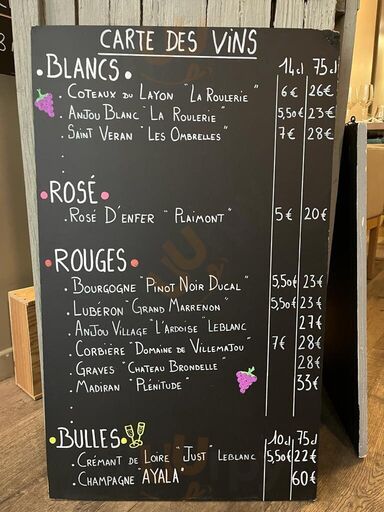 CARTE DES VINS
• BLANCS • 14cl 75cl
. COTEAUX DU LAYON "LA ROULERIE" 6€ 26€
. ANJOU BLANC "LA ROULERIE" 5,50€ 23€
. SAINT VERAN "LES OMBRELLES" 7€ 28€
.
.
• ROSÉ •
. ROSÉ D'ENFER "PLAIMONT" 5€ 20€
• ROUGES •
. BOURGOGNE "PINOT NOIR DUCAL" 5,50€ 23€
. LUBÉRON "GRAND MARRENON" 5,50€ 23€
. ANJOU VILLAGE "L'ARDOISE" LEBLANC 27€
. CORBIÈRE "DOMAINE DE VILLEMAJOU" 7€ 28€
. GRAVES "CHATEAU BRONDELLE" 28€
. MADIRAN "PLÉNITUDE" 33€
.
.
• BULLES • 10cl 75cl
. CRÉMANT DE LOIRE "JUST" LEBLANC 5,50€ 22€
. CHAMPAGNE "AYALA" 60€